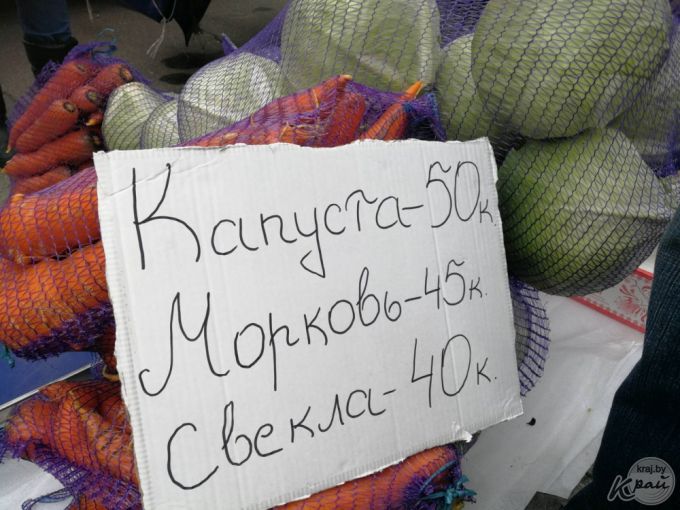 Капуста-50к.
Морковь-45к.
Свекла-40к.
kraj.by
Край